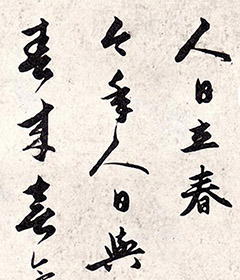 人日立春
今年人日與
春来喜